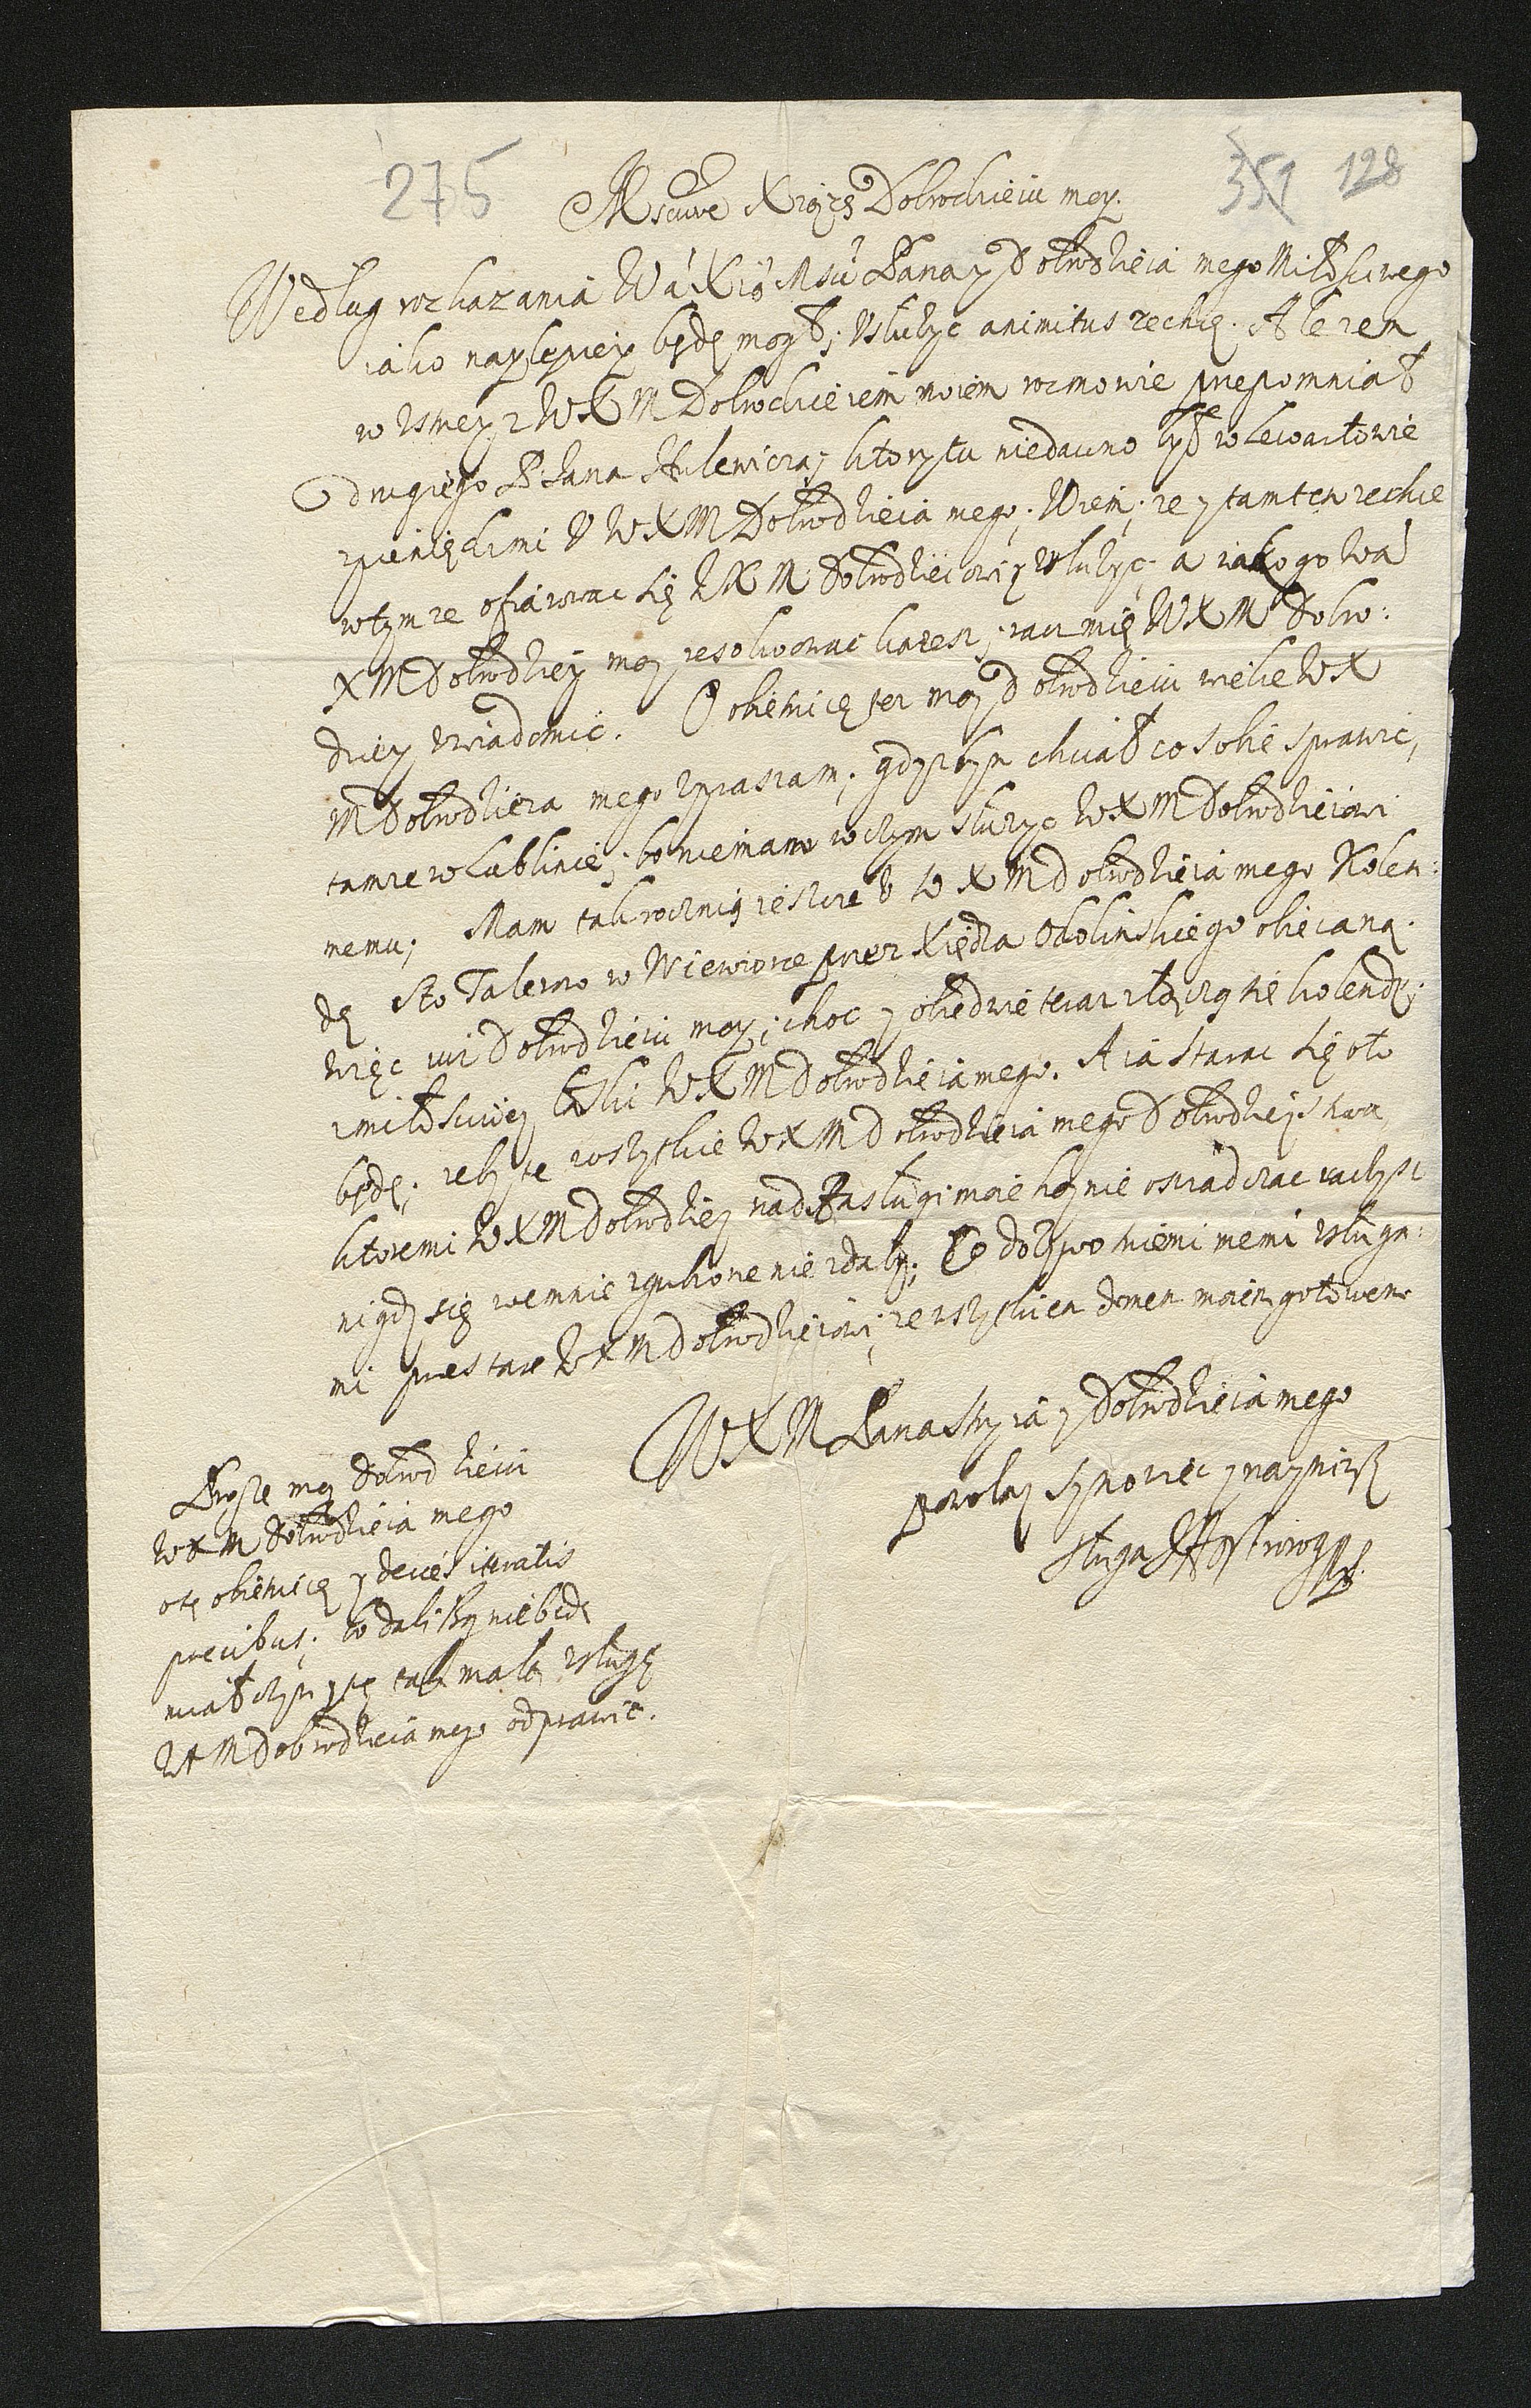 275
351 128
Msciwe Xiążę Dobrodzieiu moy.
Według roskazania Wá Xcȳ Msci Pana y Dobrodzieia mego Miłosciwego
iako naylepiey będę mogł; Vsłuzyc animitus zechcę. Ale zem
w ustney z WXM Dobrodzieiem moiem rozmowie przepomniał
drugiego P. Jana Hulewicza; ktory tu niedawno był w Lewartowie
zpieniędzmi V WXM Dobrodzieia mego; Wiem; ze y tamten zechce
wtym ze ofiarowac się WXM Dobrodzieiowi y vsłuzyc; a iako go Wá
XM Dobrodziey moy resolwowac kazesz; racz mię WXM Dobro:
dziey vwiadomic. O obietnicę tez moy Dobrodzieiu wielce WX
M Dobrodzieia mego vpraszam; gdyzbym chciał co sobie sprawic,
tamze w Lublinie; bo niemam w czym słuzyc WXM Dobrodzieiowi
memu; Mam tak rocznią ieszcze V WXM Dobrodzieia mego Kolen:
dę Sto Talerow w Wiewiorce przez Xiędza Obolinskiego obiecaną.
Więc iui Dobrodzieiu moy; choc y obiedwie teraz złączą się kolendy;
zmiłosciwey łaski WXM Dobrodzieia mego. A ia starac się oto
będę; zeby te wszystkie WXM Dobrodzieia mego Dobrodzieystwa,
ktoremi WXM Dobrodziey nad zasługi moie hoynie oswiadczac raczysz
nigdy się wemnie zgubione nie zdały; Co dozywotniemi memi vsługa:
mi przestaie WXM Dobrodzieiowi; ze wszystkiem domem moiem gotowem.
WXM Pana Stryia y Dobrodzieia mego
powolny synowiec y naynizszy
sługa
Proszę moy Dobrodzieiu
WXM Dobrodzieia mego
otę obietnicę y decies iteratis
precibus; bo daliBóg niebędę
miał czym y tę tak małą vsługę
WXM Dobrodzieia mego odprawic.